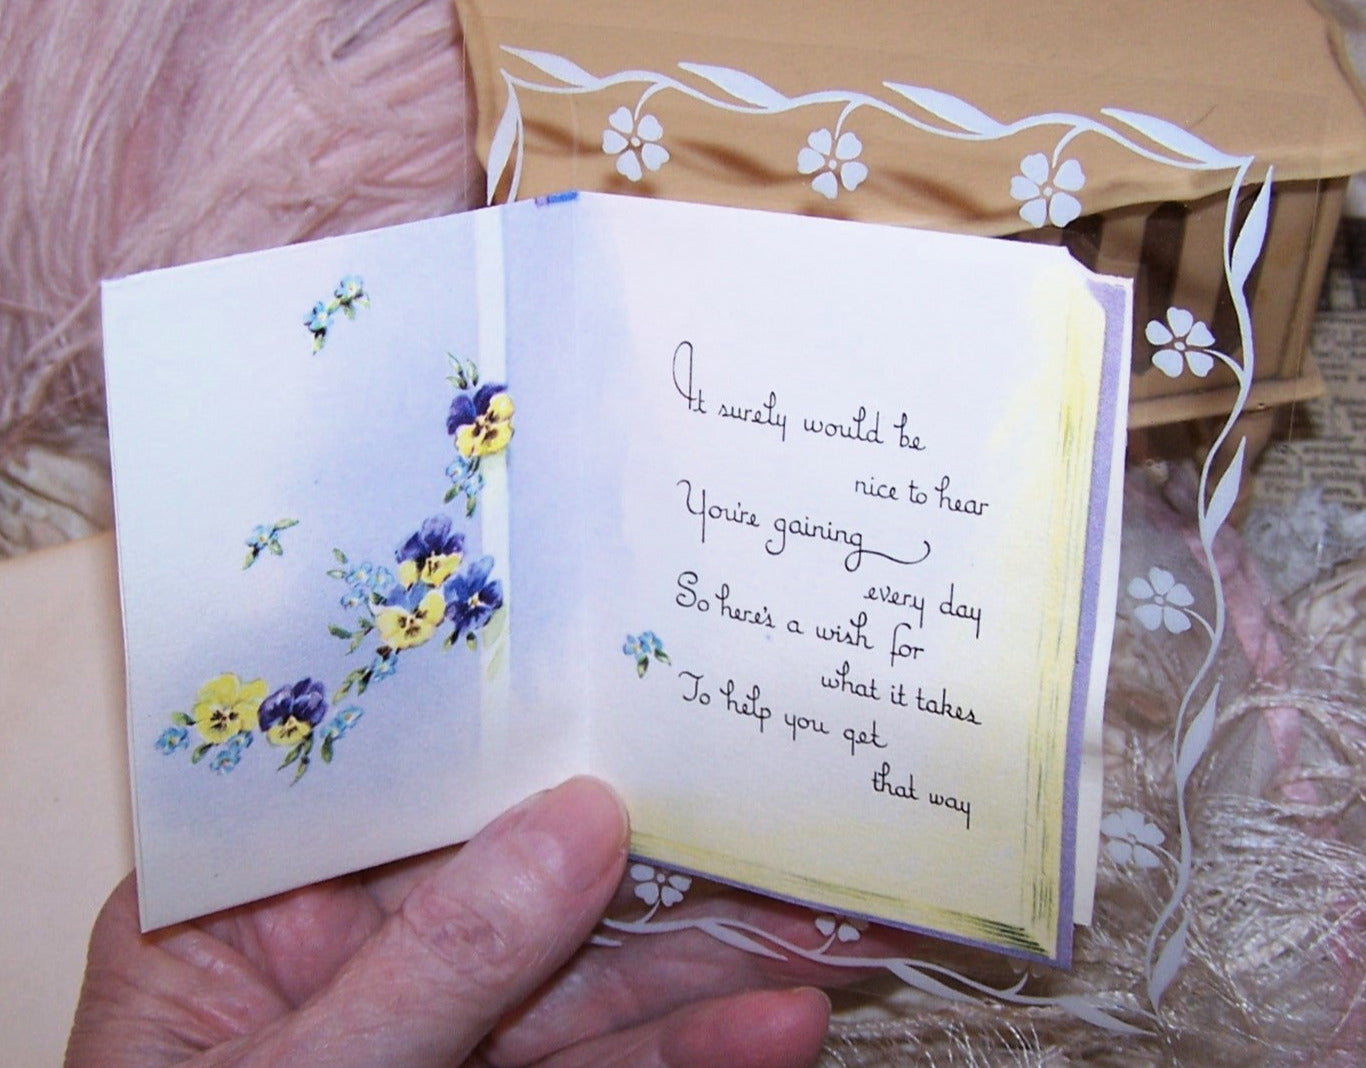 It surely would be
nice to hear
You're gaining
every day
So here's a wish for
what it takes
To help you get
that way